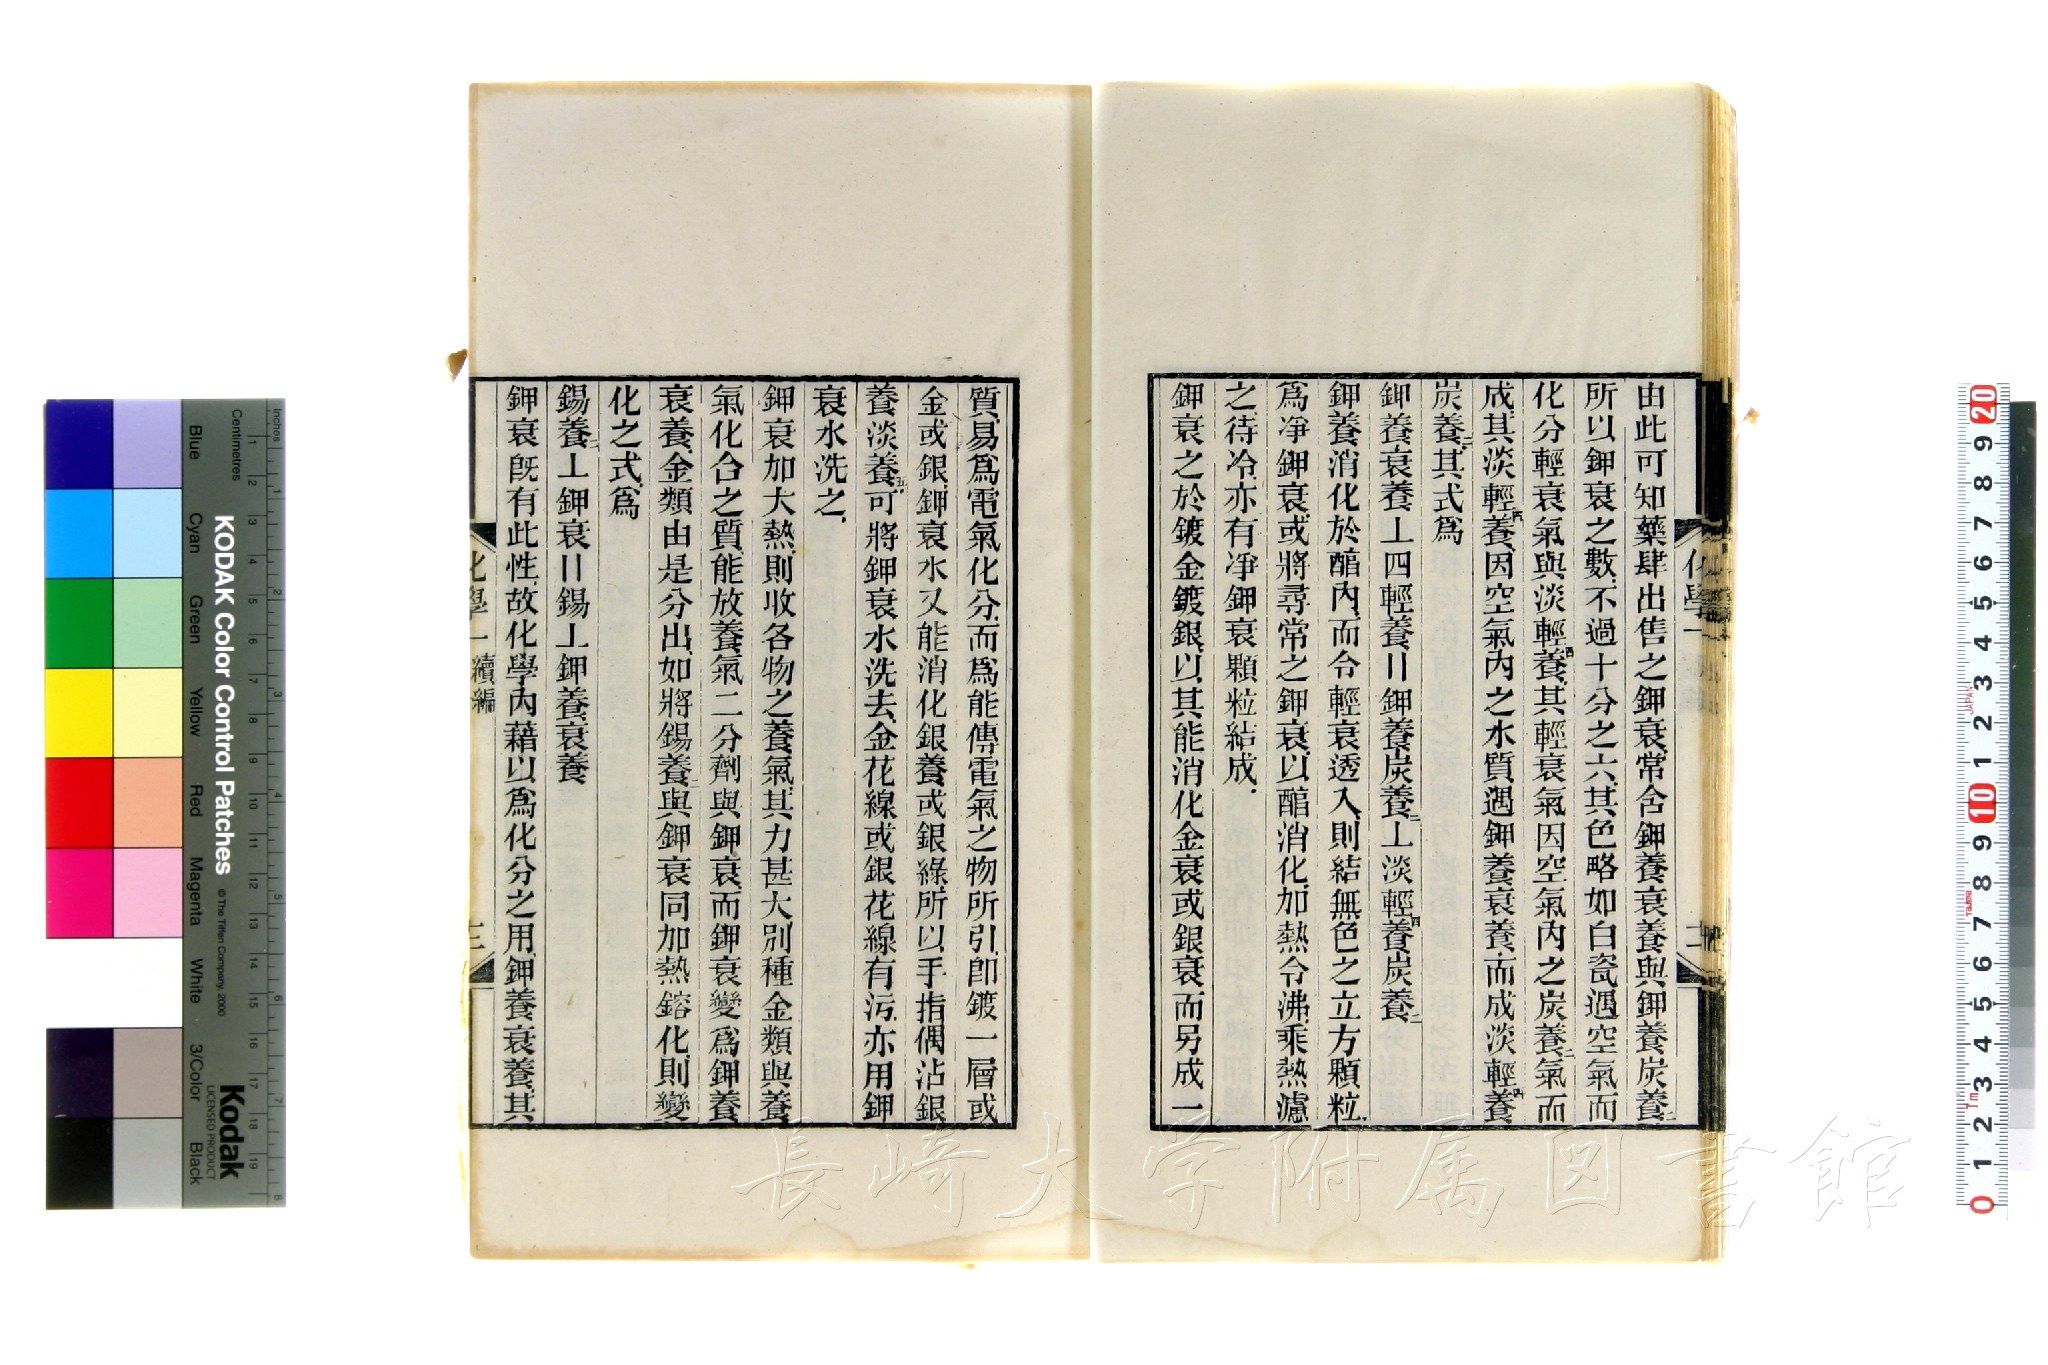 由此可知藥肆出售之鉀衰常含鉀養衰養與鉀養炭養二
所以鉀衰之數不過十分之六其色略如白瓷遇空氣而
化分輕衰氣與淡輕四養其輕衰氣因空氣內之炭養二氣而
成其淡輕四養因空氣內之水質遇鉀養衰養而成淡輕四養
炭養二其式爲
鉀養衰養⊥四輕養〢鉀養炭養二⊥淡輕四養炭養二
鉀養消化於醕內而令輕衰透入則結無色之立方顆粒
爲凈鉀衰或將尋常之鉀衰以醕消化加熱令沸乘熱濾
之待冷亦有凈鉀衰顆粒結成
鉀衰之於鍍金鍍銀以其能消化金衰或銀衰而另成一
化學一
二
質易爲電氣化分而爲能傳電氣之物所引卽鍍一層或
金或銀鉀衰水又能消化銀養或銀綠所以手指偶沾銀
養淡養五可將鉀衰水洗去金花線或銀花線有污亦用鉀
衰水洗之
鉀衰加大熱則收各物之養氣其力甚大別種金類與養
氣化合之質能放養氣二分劑與鉀衰而鉀衰變爲鉀養
衰養金類由是分出如將錫養二與鉀衰同加熱鎔化則變
化之式爲
錫養二⊥鉀衰〢錫⊥鉀養衰養
鉀衰旣有此性故化學內藉以爲化分之用鉀養衰養其
化學一 續編
三
長崎大学附属図書館
KODAK Color Control Patches
© The Tiffen Company, 2000
Kodak
LICENSED PRODUCT
Inches
Centimetres
Blue
Cyan
Green
Yellow
Red
Magenta
White
3/Color
Black
1 2 3 4 5 6 7 8
1 2 3 4 5 6 7 8 9 10 11 12 13 14 15 16 17 18 19
20 9 8 7 6 5 4 3 2 1 10 9 8 7 6 5 4 3 2 1 0
JAPAN